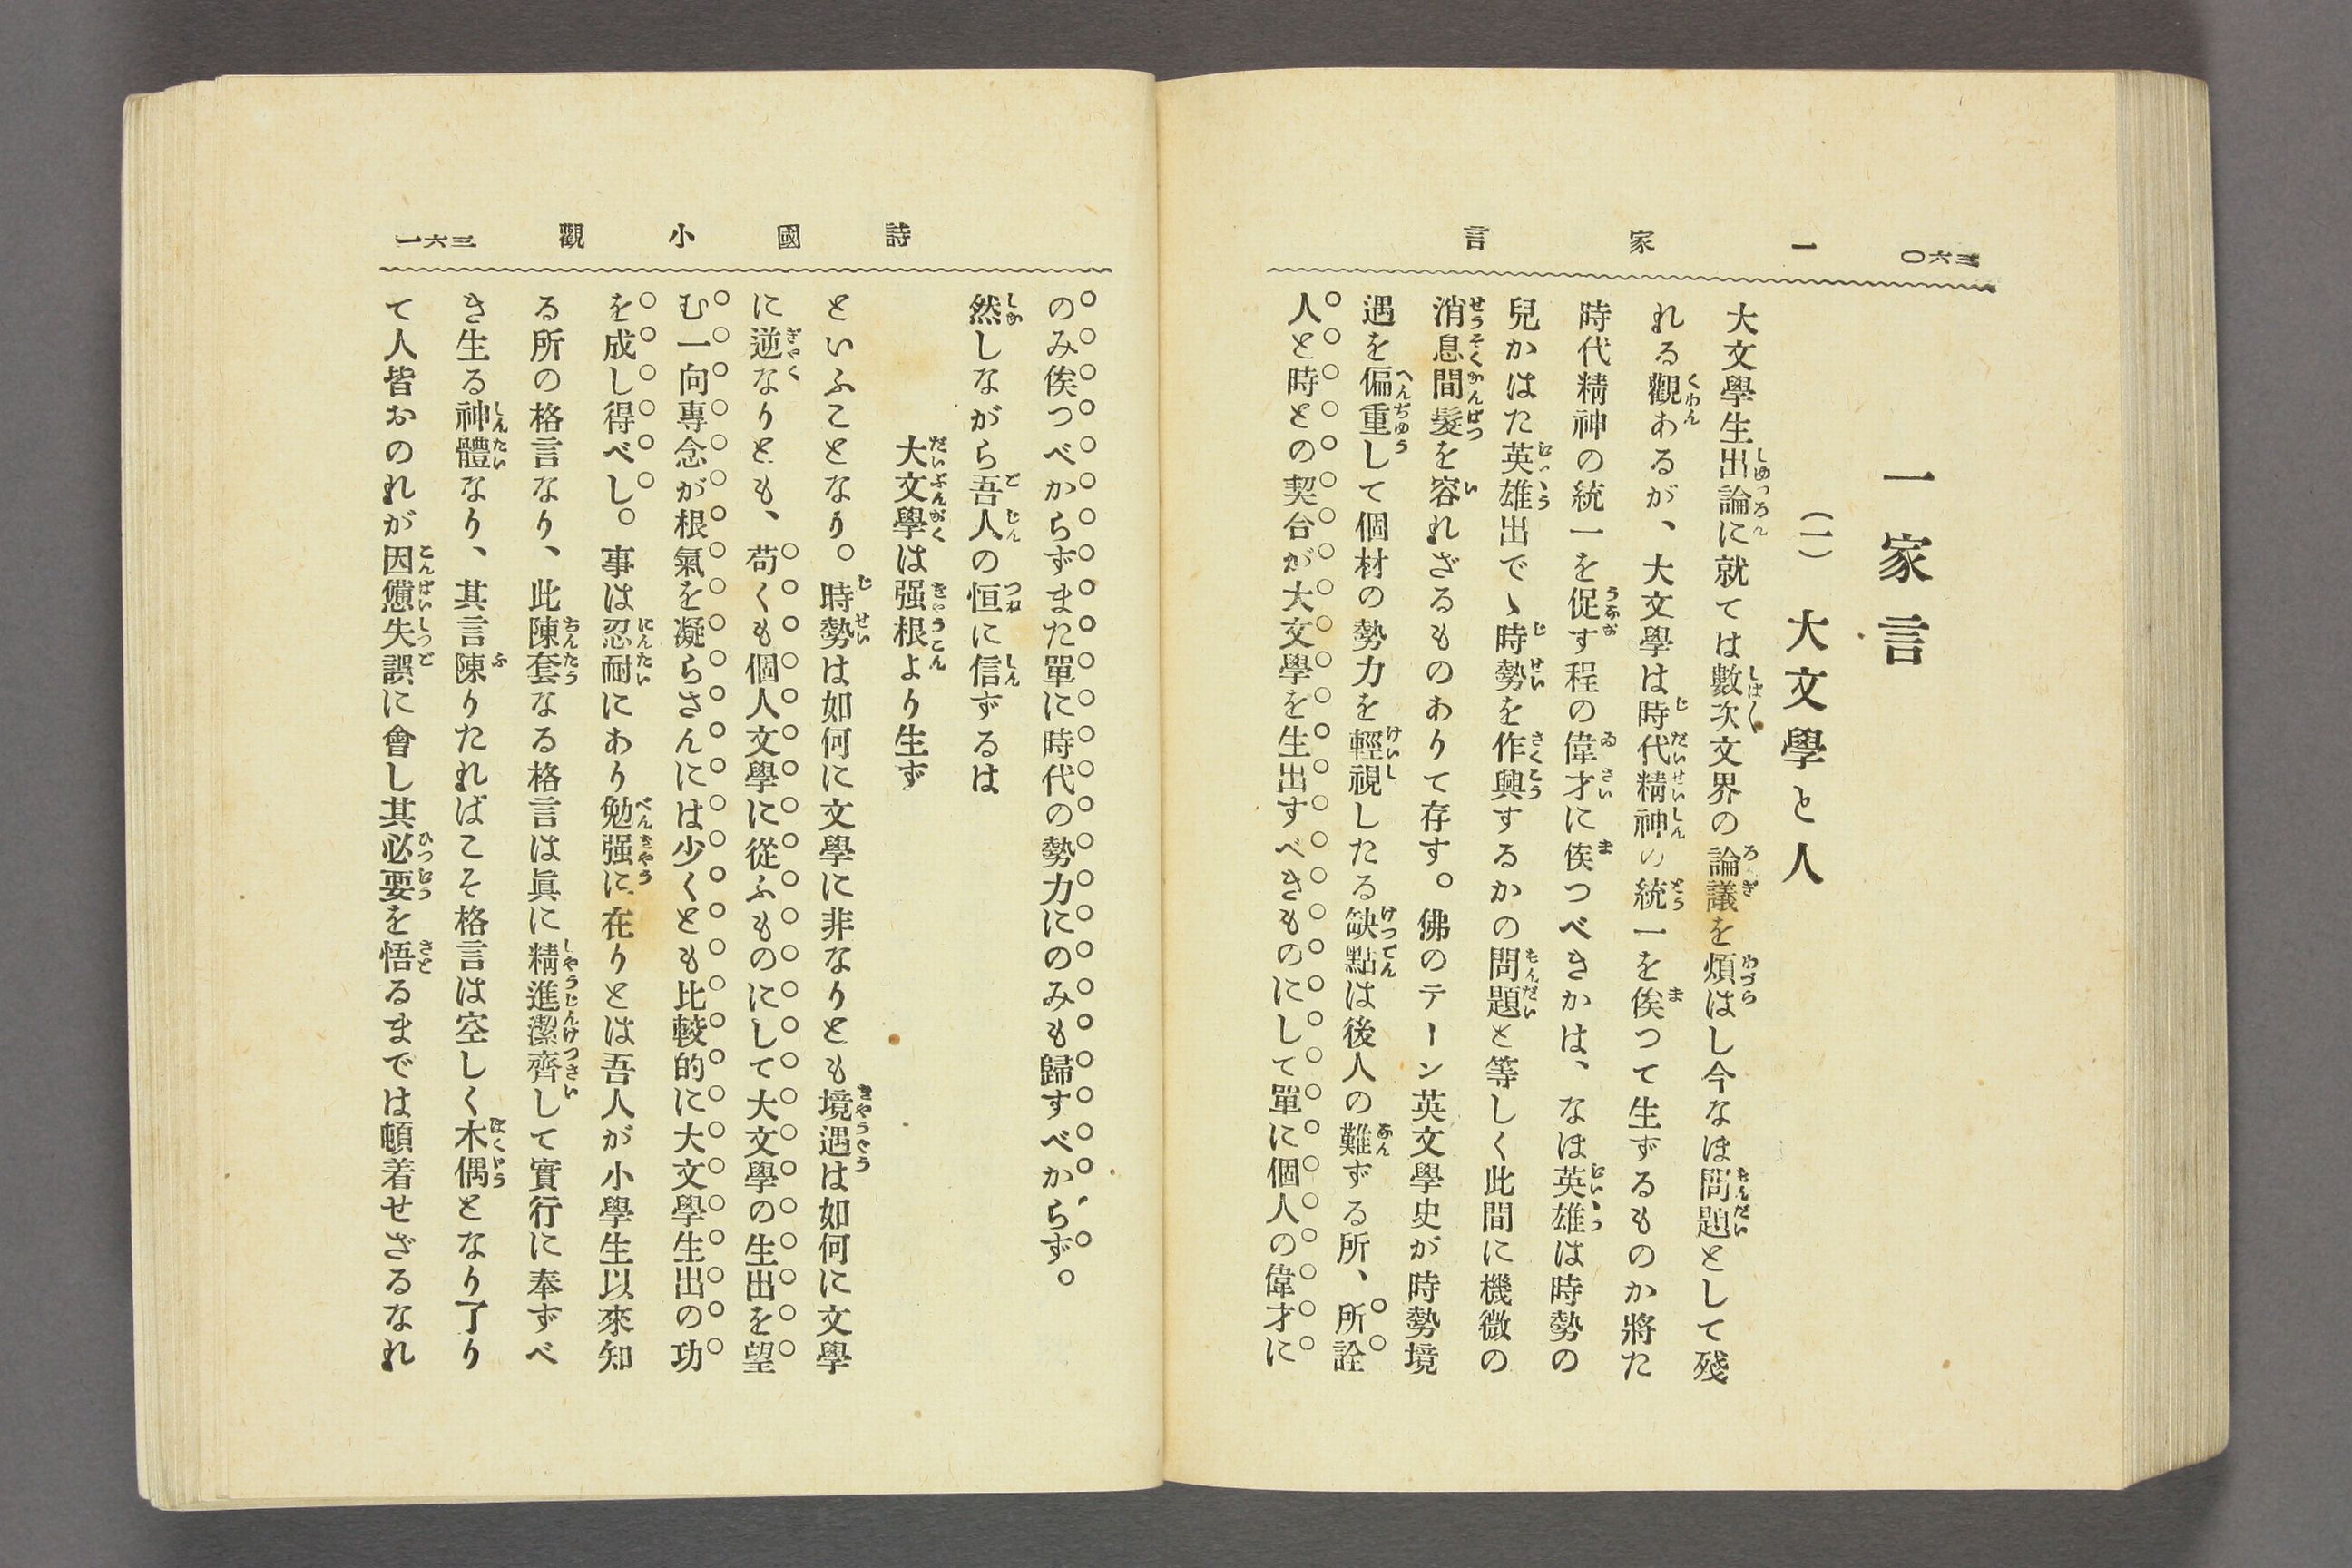 三六〇
一家言
一家言
(一) 大文學と人
大文學生出論に就ては數次文界の論議を煩はし今なほ問題として殘
れる觀あるが、大文學は時代精神の統一を俟つて生ずるものか將た
時代精神の統一を促す程の偉才に俟つべきかは、なほ英雄は時勢の
兒かはた英雄出でゝ時勢を作興するかの問題と等しく此間に機微の
消息間髮を容れざるものありて存す。佛のテーン英文學史が時勢境
遇を偏重して個材の勢力を輕視したる缺點は後人の難ずる所、所詮
人と時との契合が大文學を生出すべきものにして單に個人の偉才に
詩國小觀
三六一
のみ俟つべからずまた單に時代の勢力にのみも歸すべからず。
然しながら吾人の恒に信ずるは
大文學は强根より生ず
といふことなり。時勢は如何に文學に非なりとも境遇は如何に文學
に逆なりとも、苟くも個人文學に從ふものにして大文學の生出を望
む一向專念が根氣を凝らさんには少くとも比較的に大文學生出の功
を成し得べし。事は忍耐にあり勉强に在りとは吾人が小學生以來知
る所の格言なり、此陳套なる格言は眞に精進潔齊して實行に奉ずべ
き生る神體なり、其言陳りたればこそ格言は空しく木偶となり了り
て人皆おのれが因憊失誤に會し其必要を悟るまでは頓着せざるなれ